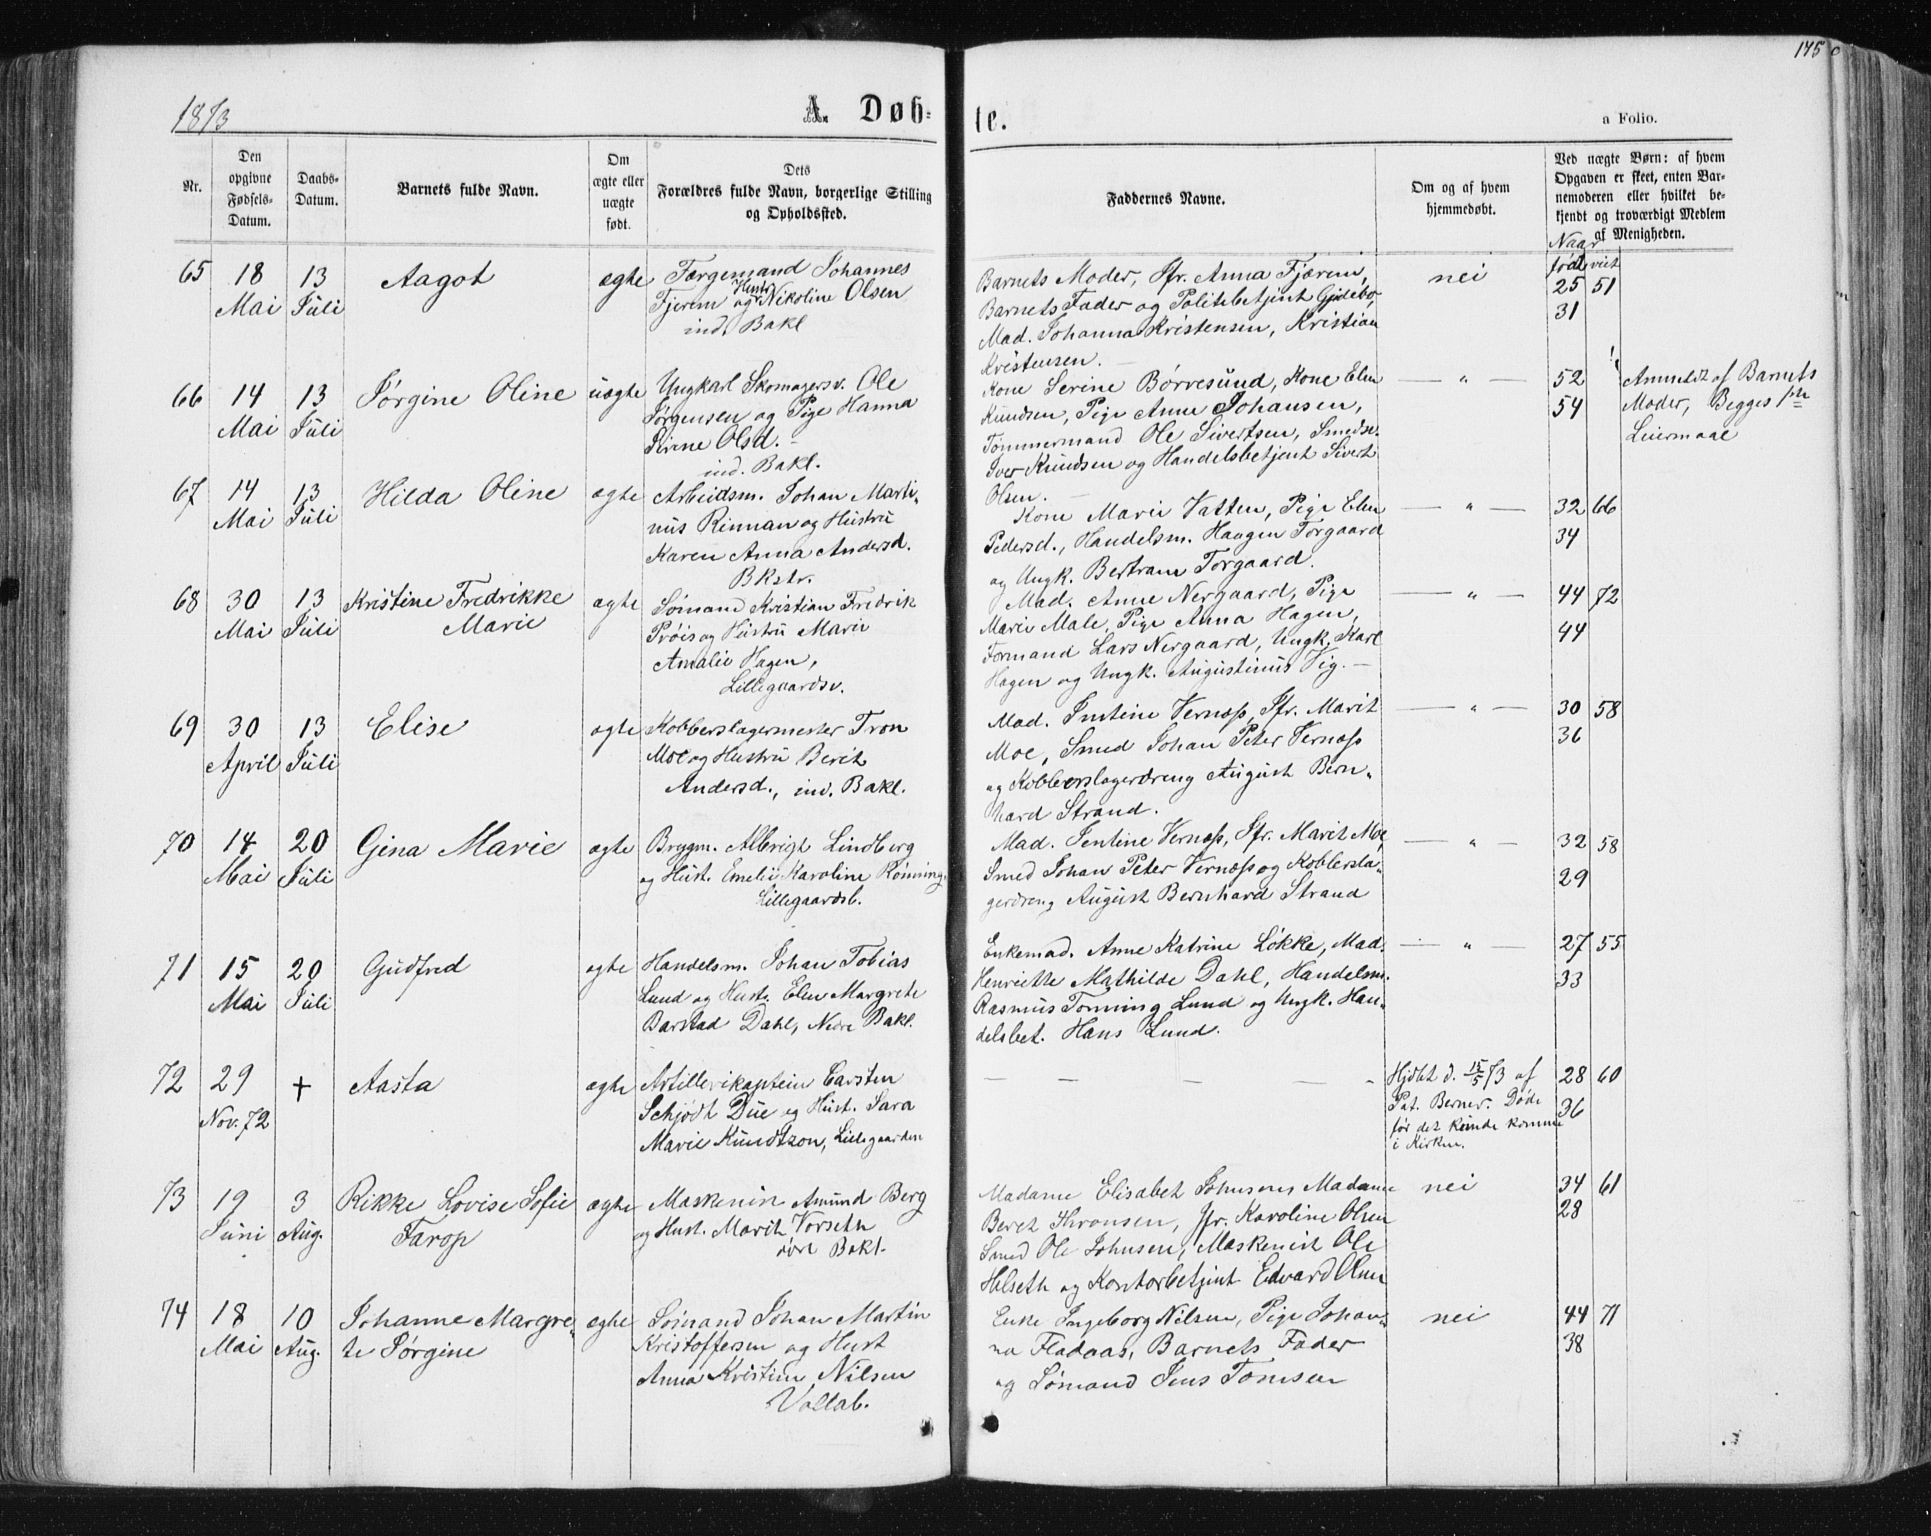 175 c
1873
A. Døb-
te.
a Folio.
Nr.
Den
opgivne
Fødsels-
Datum.
Daabs-
Datum.
Barnets fulde Navn.
Om
ægte eller
uægte
født.
Dets
Forældres fulde Navn, borgerlige Stilling
og Opholdssted.
Faddernes Navne.
Om og af hvem
hjemmedøbt.
Ved uægte Børn: af hvem
Opgaven er skeet, enten Bar-
nemoderen eller hvilket be-
kjendt og troværdigt Medlem
af Menigheden.
Naar
født viet
65 18 Mai 13 Juli Aagot ægte
Færgemand Johannes
Fjerem og Hustr. Nikoline Olsen
ind. Bakl
Barnets Moder, Jfr. Anna Fjærem,
Barnets Fader og Politibetjent Gjidebo,
Mad. Johanna Kristensen, Kristian
Kristensen.
nei
25 51
31
66 14 Mai 13 Juli Jørgine Oline uægte
Ungkarl Skomagersv. Ole
Jørgensen og Pige Hanna
Sirine Olsd.
ind. Bakl.
Kone Serine Børvesund, Kone Elen
Knudsen, Pige Anne Johansen,
Tømmermand Ole Sivertsen, Smedsv.
Iver Knudsen og Handelsbetjent Sivert
Olsen.
— " —
52
54
Anmeldt af Barnets
Moder, Begges
Leiermaal
67 14 Mai 13 Juli Hilda Oline ægte
Arbeidsm. Johan Marti-
nus Rinnan og Hustru
Karen Anna Andersd.
Bkstr.
Kone Marie Vatten, Pige Elen
Pedersd., Handelsm. Haagen Torgaard
og Ungk. Bertram Torgaard.
— " —
32 66
34
68 30 Mai 13 Juli Kristine Fredrikke
Marie ægte
Sømand Kristian Fredrik
Prøis og Hustru Marie
Amalie Hagen,
Lillegaardsv.
Mad. Anne Nergaard, Pige
Marie Male, Pige Anna Hagen,
Formand Lars Nergaard, Ungk. Karl
Hagen og Ungk. Augustinus Vig. —
— " —
44 72
44
69 30 April 13 Juli Elise ægte
Kobberslagermester Tron
Moe og Hustru Berit
Andersd., ind. Bakl.
Mad. Jentine Vernøss, Jfr. Marit
Moe, Smed Johan Peter Vernøss
og Kobberslagerdreng August Bern-
hard Strand.
— " —
30 58
36
70 14 Mai 20 Juli Gina Marie ægte
Brygm. Albrigt Lindberg
og Hust. Emelie Karoline Rønning,
Lillegaardsb.
Mad. Jentine Vernøss, Jfr. Marit Moe,
Smed Johan Peter Vernøss og Kobbersla-
gerdreng August Bernhard Strand
— " —
32 58
29
71 15 Mai 20 Juli Gudfred ægte
Handelsm. Johan Tobias
Lund og Hust. Elen Margrete
Barstad Dahl, Nedre Bakl.
Enkemad. Anne Katrine Løkke, Mad.
Henriette Mathilde Dahl, Handelsm.
Rasmus Tonning Lund og Ungk. Han-
delsbet. Hans Lund.
— " —
27 55
33
72 29 Nov. 72 + Aasta ægte
Artillerikaptein Carsten
Schjødt Due og Hust. Sara
Marie Knudtzon, Lillegaarden
— — — — "
Hjdbt d. 15/5 73 af
Pat. Berner. Døde
før det kunde komme
i Kirken.
28 60
36
73 19 Juni 3 Aug. Rikke Lovise Sofie
Farop ægte
Maskenin Amund Berg
og Hust. Marit Vorseth
øvre Bakl.
Madame Elisabet Johnsen, Madame
Beret Thronsen, Jfr. Karoline Olsen
Smed Ole Johnsen, Maskenist Ole
Helseth og Kontorbetjent Edvard Olsen
nei
34 61
28
74 18 Mai 10 Aug. Johanne Margre-
te Jørgine ægte
Sømand Johan Martin
Kristoffersen og Hust
Anna Kristine Nilsen
Voltab.
Enke Ingeborg Nilsen, Pige Johan-
na Fladaas, Barnets Fader
og Sømand Jens Tomsen
nei
44 71
38